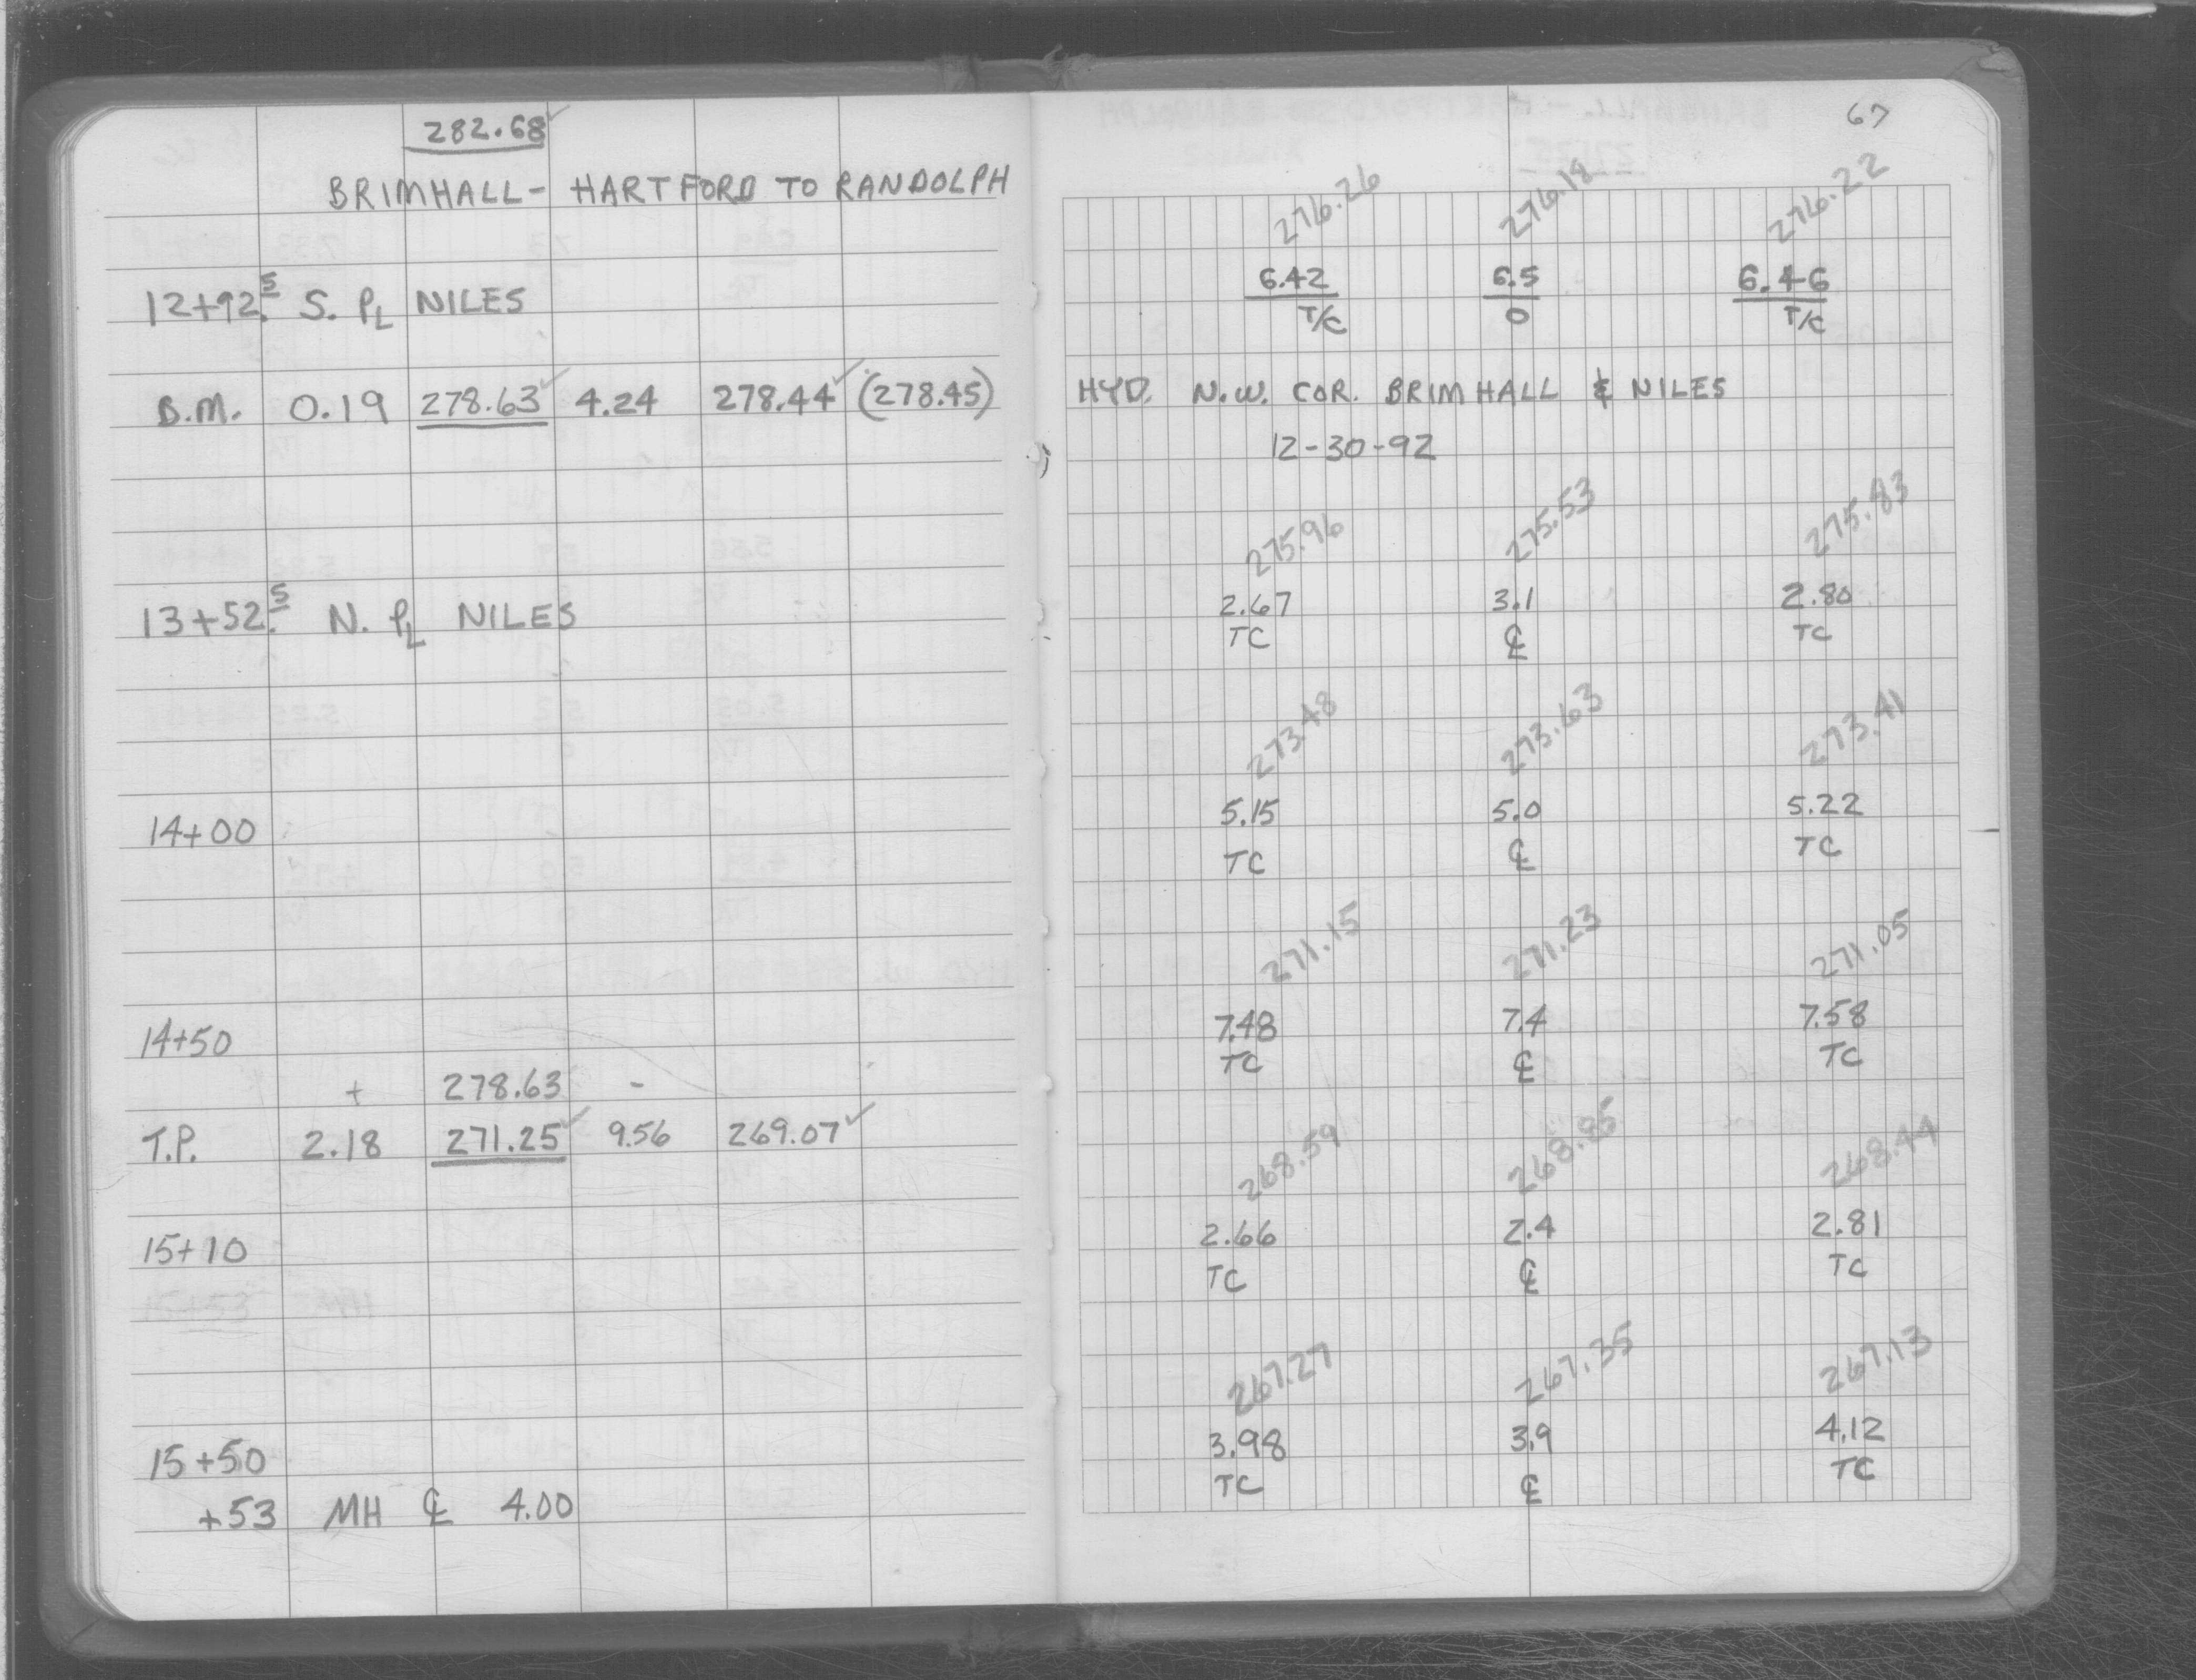 282.68✓
BRIMHALL- HARTFORD TO RANDOLPH
12+92.5 S. PL NILES
B.M. 0.19 278.63✓ 4.24 278.44✓ (278.45)
13+52.5 N. PL NILES
14+00
14+50
+ 278.63 -
T.P. 2.18 271.25✓ 9.56 269.07✓
15+10
15+50
+53 MH ℄ 4.00
67
276.26 276.18 276.22
6.42 6.5 6.46
T/C 0 T/C
HYD. N.W. COR. BRIMHALL & NILES
12-30-92
275.96 275.53 275.83
2.67 3.1 2.80
TC ℄ TC
273.48 273.63 273.41
5.15 5.0 5.22
TC ℄ TC
271.15 271.23 271.05
7.48 7.4 7.58
TC ℄ TC
268.59 268.85 268.44
2.66 2.4 2.81
TC ℄ TC
267.27 267.35 267.13
3.98 3.9 4.12
TC ℄ TC